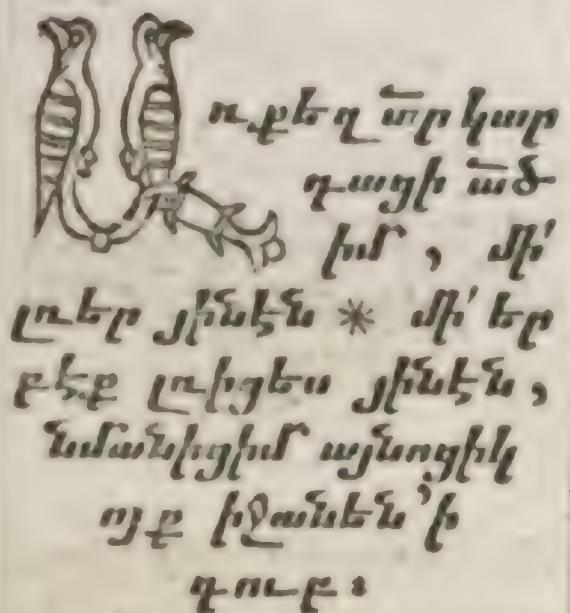 Առ քեզ տ̅ր կար
դացի ա̅ծ
իմ, մի՛
լռեր յի՛նէն * մի՛ եր
բէք լռիցես յինէն,
նմանիցիմ այնոցիկ
ոյք իջանեն՝ ի
գուբ։